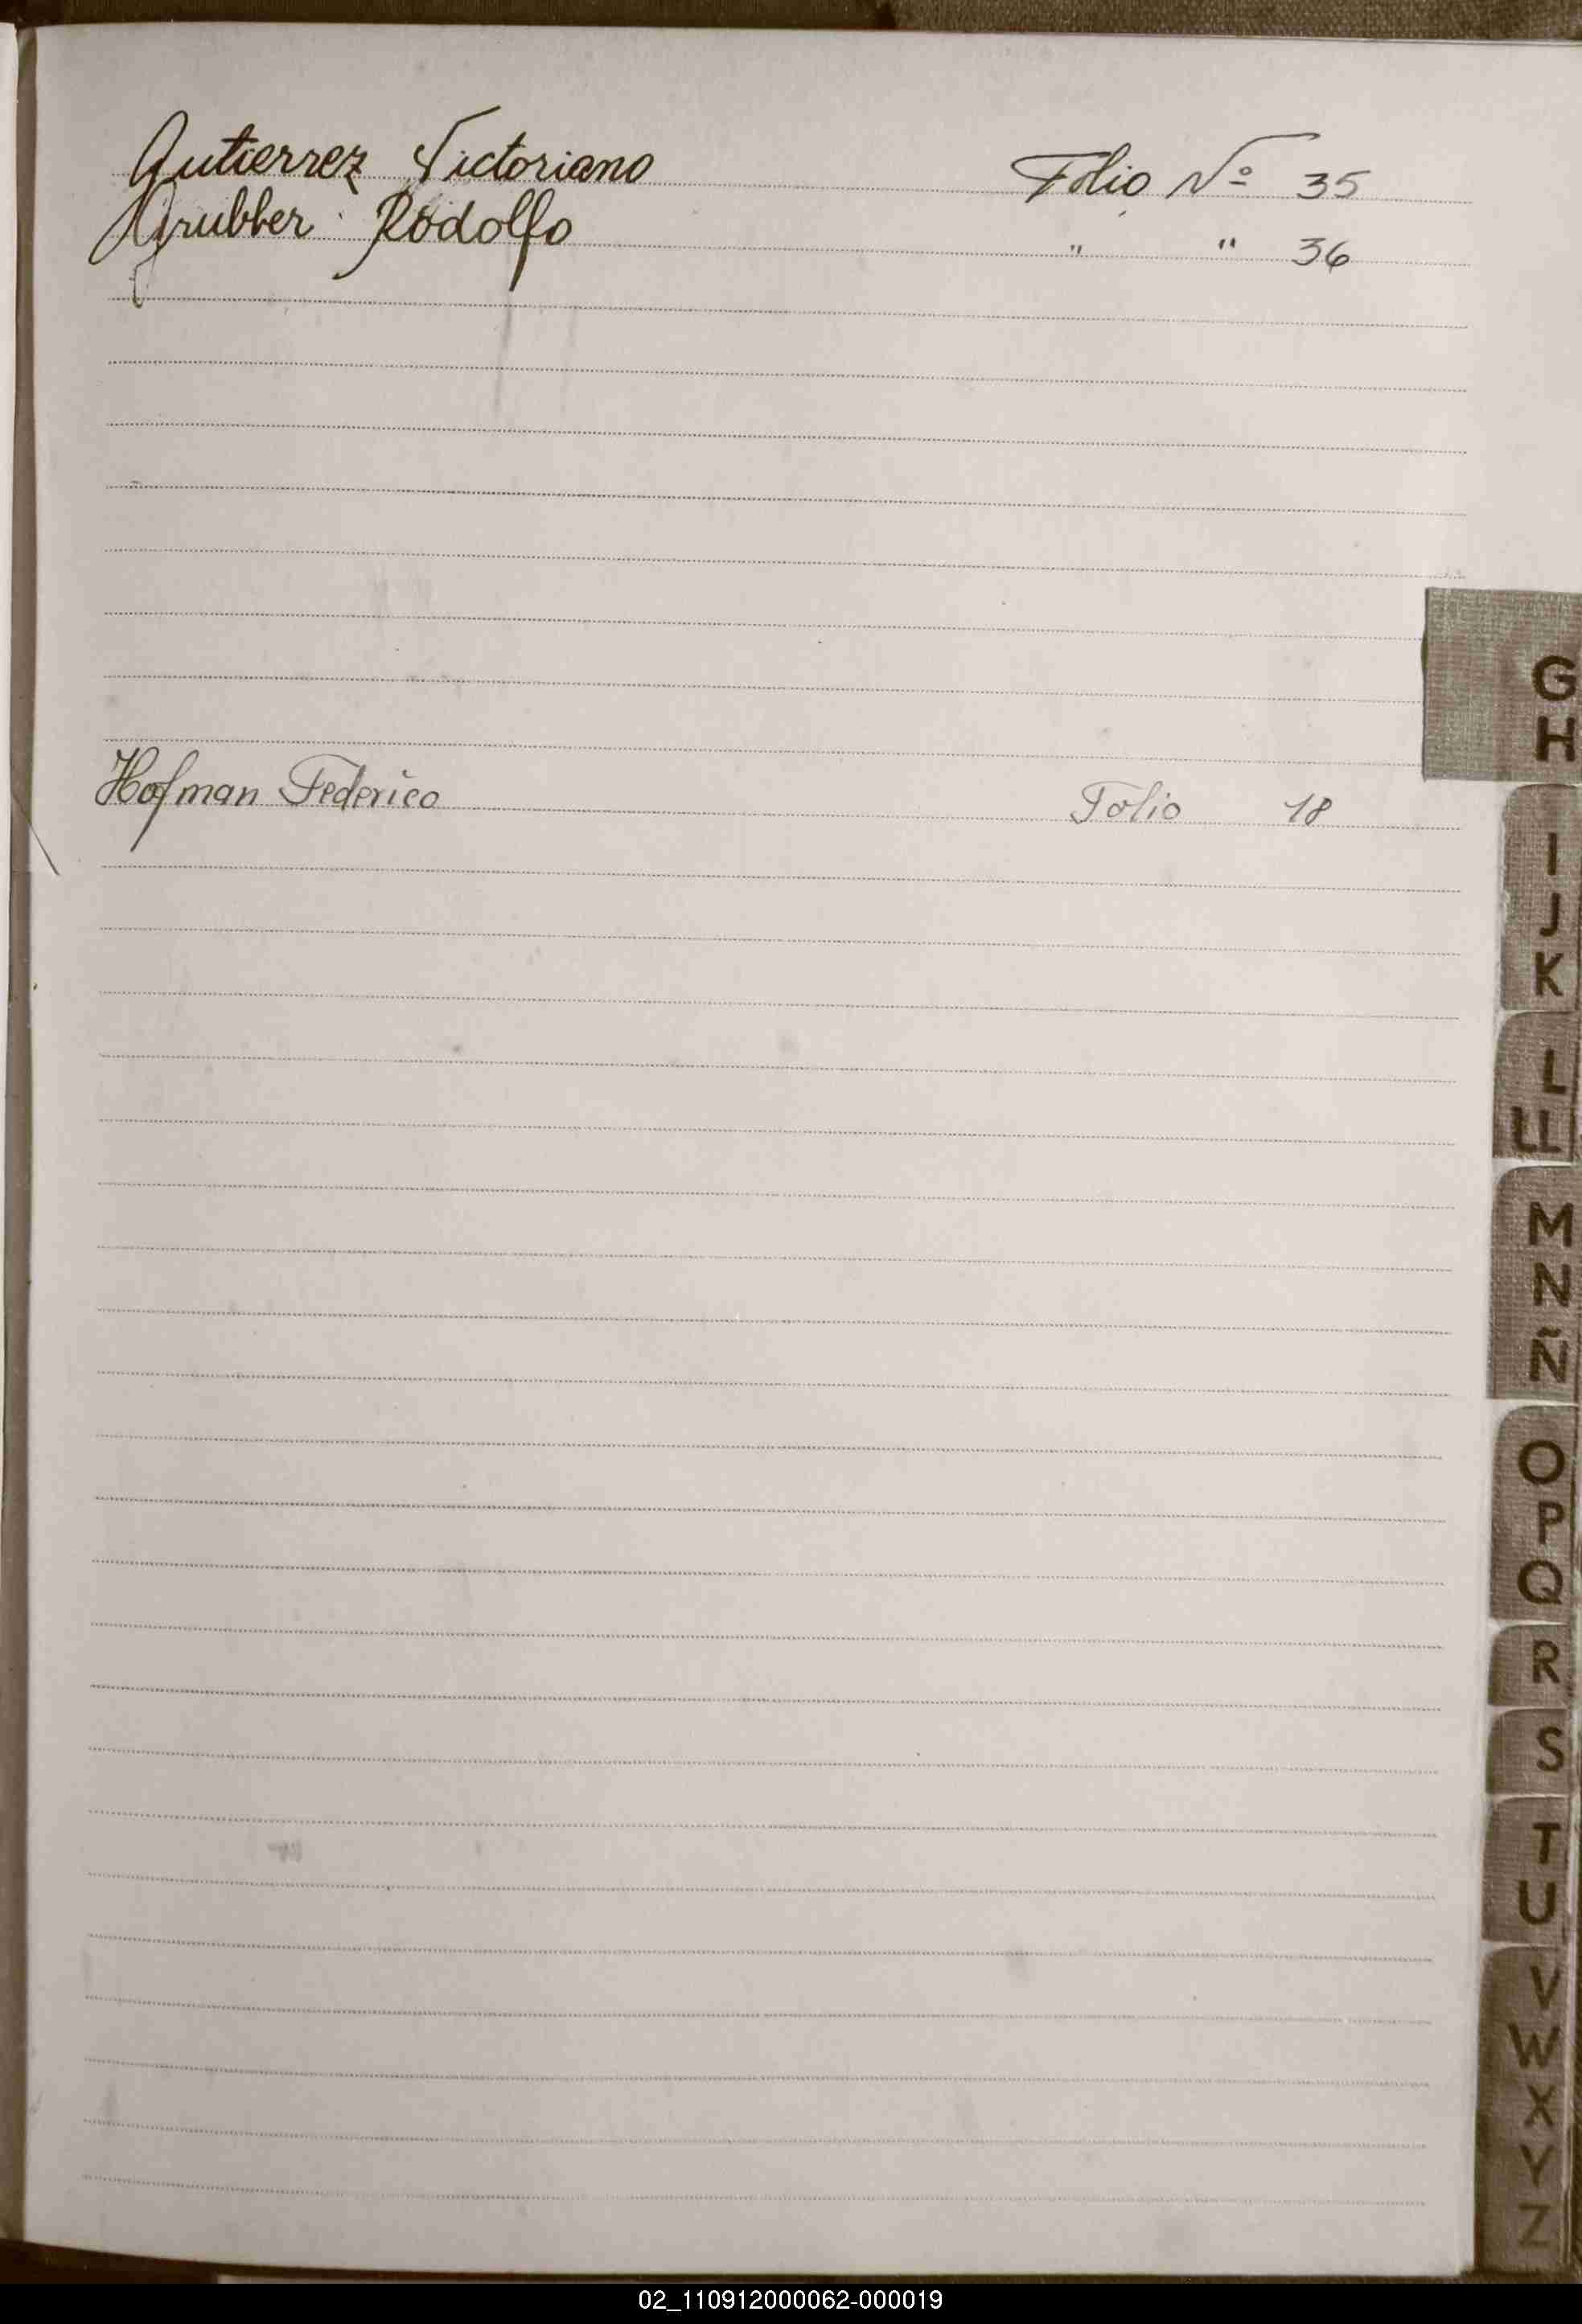 Gutierrez Victoriano Folio Nº 35
Grubber Rodolfo " " 36
Hofman Federico Folio 18
G
H
I
J
K
L
LL
M
N
Ñ
O
P
Q
R
S
T
U
V
W
X
Y
Z
02_110912000062-000019